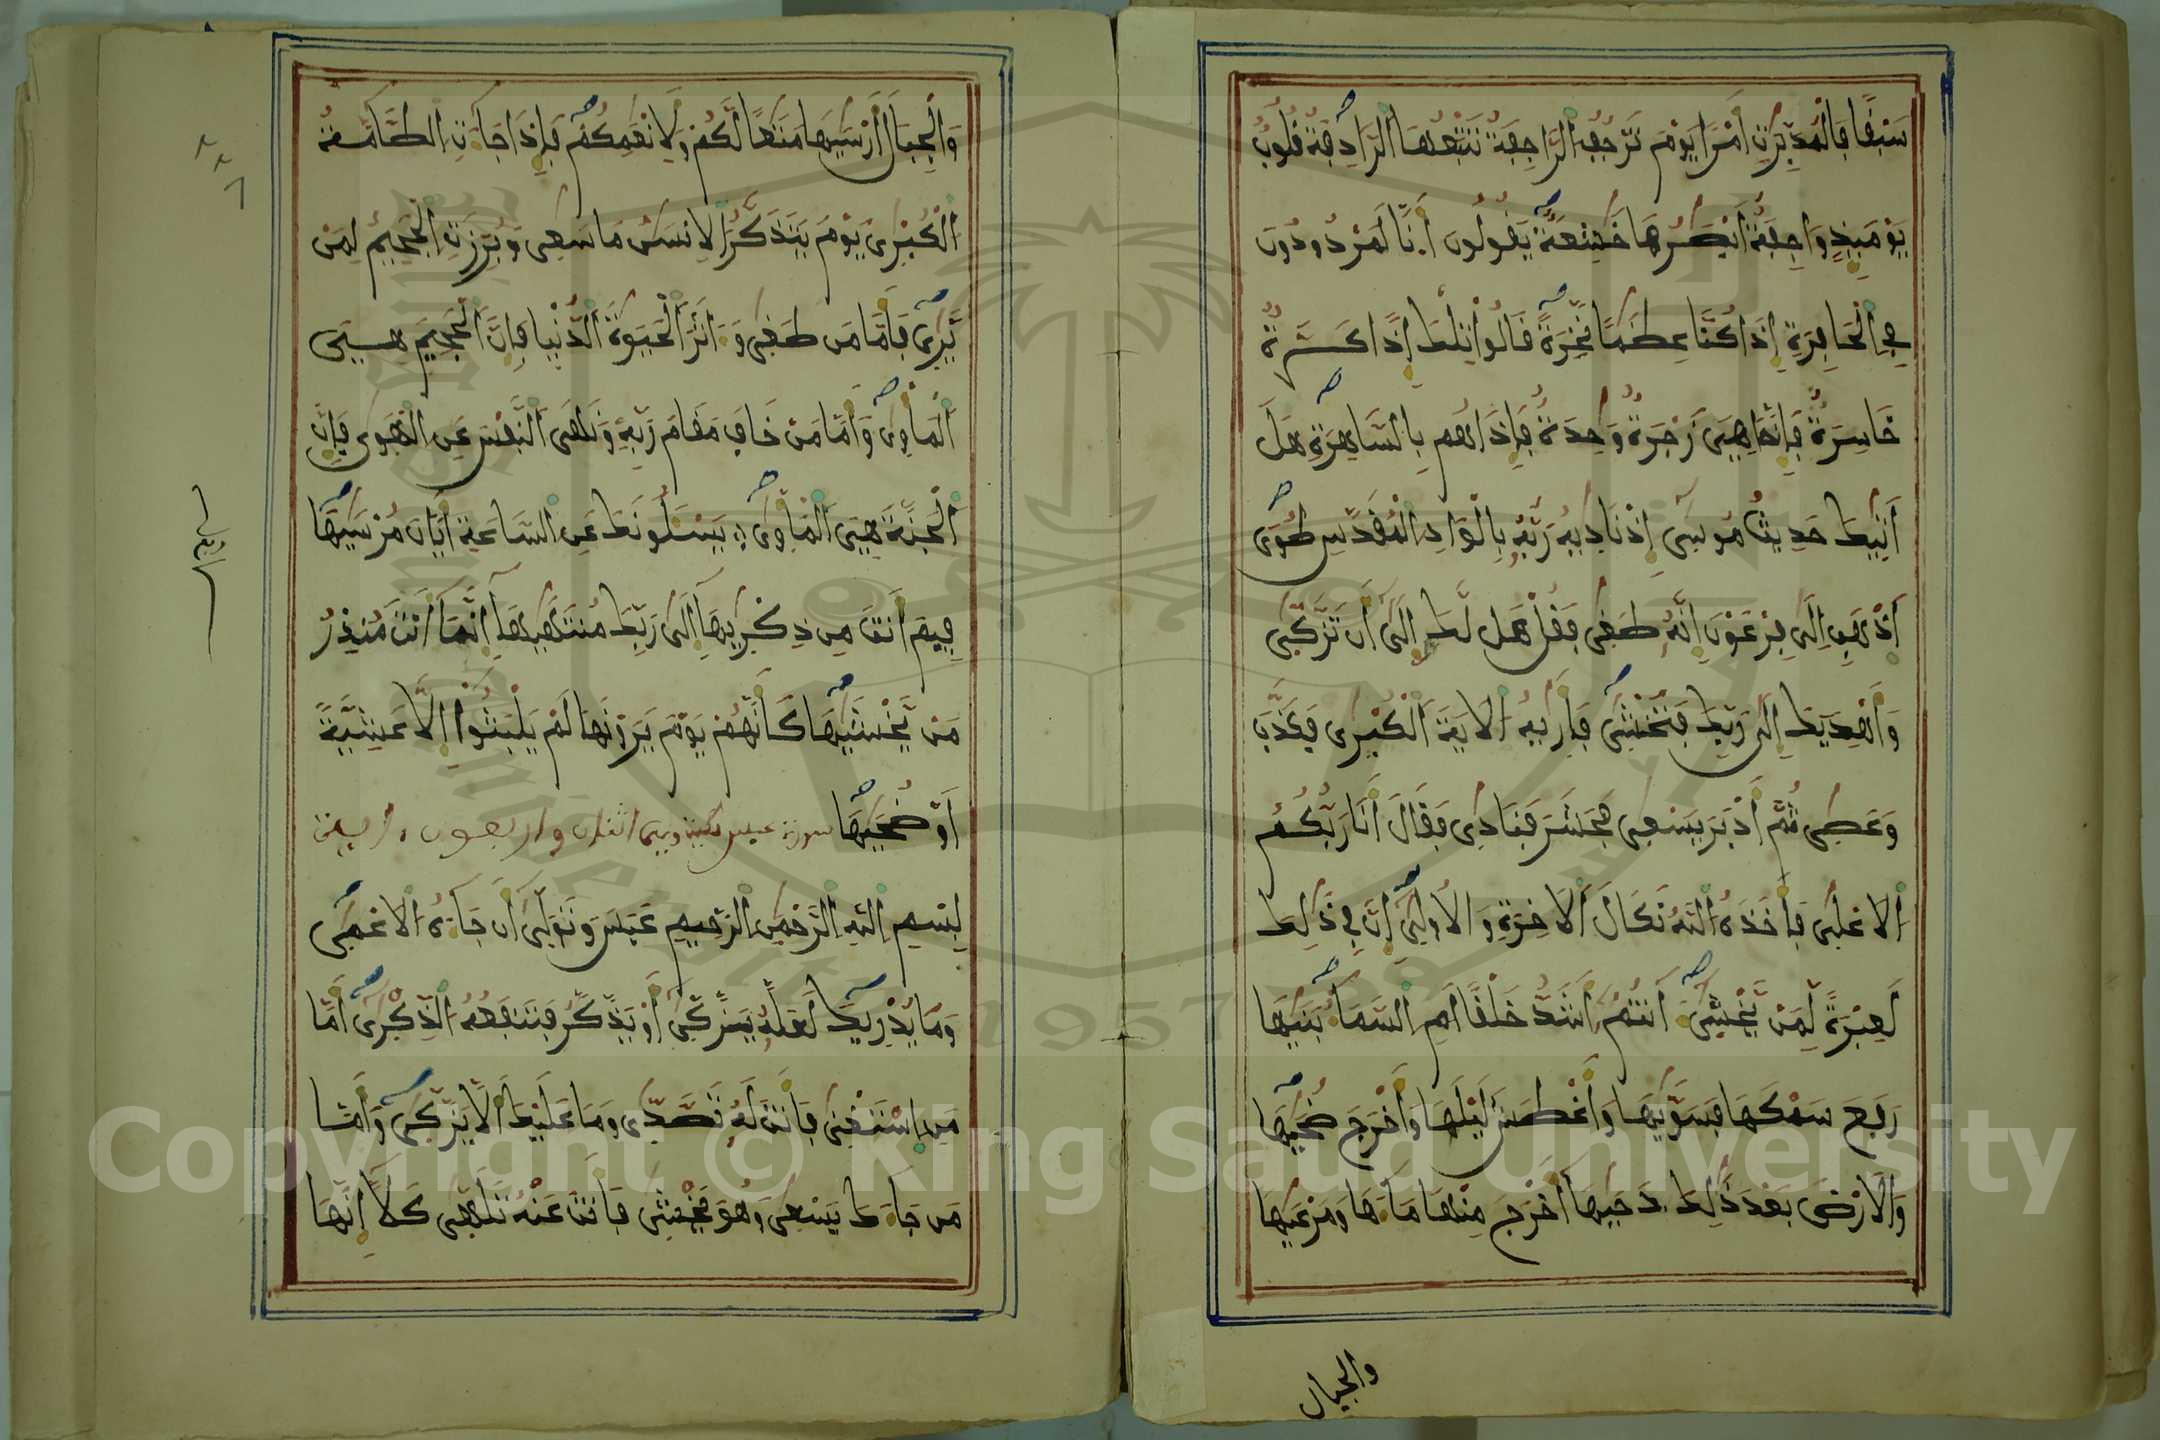 سَبْقًا فَالْمُدَبِّرَٰتِ أَمْرًا يَوْمَ تَرْجُفُ الرَّاجِفَةُ تَتْبَعُهَا الرَّادِفَةُ قُلُوبٌ
يَوْمَئِذٍ وَاجِفَةٌ أَبْصَٰرُهَا خَٰشِعَةٌ يَقُولُونَ أَ.نَّا لَمَرْدُودُونَ
فِي الْحَافِرَةِ إِذَا كُنَّا عِظَٰمًا نَّخِرَةً قَالُوا تِلْكَ إِذًا كَرَّةٌ
خَاسِرَةٌ فَإِنَّمَا هِيَ زَجْرَةٌ وَٰحِدَةٌ فَإِذَا هُم بِالسَّاهِرَةِ هَلَ
أَتَيٰكَ حَدِيثُ مُوسَىٰ إِذْ نَادَيٰهُ رَبُّهُ بِالْوَادِ الْمُقَدَّسِ طُوَىٰ
اَذْهَبِ اِلَىٰ فِرْعَوْنَ إِنَّهُ طَغَىٰ فَقُلْ هَل لَّكَ إِلَىٰ أَن تَزَّكَّىٰ
وَأَهْدِيَكَ إِلَىٰ رَبِّكَ فَتَخْشَىٰ فَأَرَيٰهُ الَايَةَ الْكُبْرَىٰ فَكَذَّبَ
وَعَصَىٰ ثُمَّ أَدْبَرَ يَسْعَىٰ فَحَشَرَ فَنَادَىٰ فَقَالَ أَنَا رَبُّكُمُ
الَاعْلَىٰ فَأَخَذَهُ اللَّهُ نَكَالَ الَاخِرَةِ وَالُاولَىٰ إِنَّ فِي ذَٰلِكَ
لَعِبْرَةً لِّمَنْ يَّخْشَىٰ ءَأَنتُمْ أَشَدُّ خَلْقًا اَمِ السَّمَآءُ بَنَيٰهَا
رَفَعَ سَمْكَهَا فَسَوَّيٰهَا وَأَغْطَشَ لَيْلَهَا وَأَخْرَجَ ضُحَيٰهَا
وَالَارْضَ بَعْدَ ذَٰلِكَ دَحَيٰهَا أَخْرَجَ مِنْهَا مَآءَهَا وَمَرْعَيٰهَا
والجبال
٢٢٦
وَالْجِبَالَ أَرْسَيٰهَا مَتَٰعًا لَّكُمْ وَلِأَنْعَٰمِكُمْ فَإِذَا جَآءَتِ الطَّآمَّةُ
الْكُبْرَىٰ يَوْمَ يَتَذَكَّرُ الِانسَٰنُ مَا سَعَىٰ وَبُرِّزَتِ الْجَحِيمُ لِمَنْ
يَّرَىٰ فَأَمَّا مَن طَغَىٰ وَءَاثَرَ الْحَيَوٰةَ الدُّنْيَا فَإِنَّ الْجَحِيمَ هِيَ
الْمَأْوَىٰ وَأَمَّا مَنْ خَافَ مَقَامَ رَبِّهِ وَنَهَى النَّفْسَ عَنِ الْهَوَىٰ فَإِنَّ
الْجَنَّةَ هِيَ الْمَأْوَىٰ يَسْـَٔلُونَكَ عَنِ السَّاعَةِ أَيَّانَ مُرْسَيٰهَا
فِيمَ أَنتَ مِن ذِكْرَيٰهَا إِلَىٰ رَبِّكَ مُنتَهَيٰهَا إِنَّمَا أَنتَ مُنذِرُ
مَنْ يَّخْشَيٰهَا كَأَنَّهُمْ يَوْمَ يَرَوْنَهَا لَمْ يَلْبَثُوا إِلَّا عَشِيَّةً
أَوْ ضُحَيٰهَا سورة عبس مكية وهي اثنان واربعون ءاية
بِسْمِ اللَّهِ الرَّحْمَٰنِ الرَّحِيمِ عَبَسَ وَتَوَلَّىٰ أَن جَآءَهُ الَاعْمَىٰ
وَمَا يُدْرِيكَ لَعَلَّهُ يَزَّكَّىٰ أَوْ يَذَّكَّرُ فَتَنفَعُهُ الذِّكْرَىٰ أَمَّا
مَنِ اِسْتَغْنَىٰ فَأَنتَ لَهُ تَصَّدَّىٰ وَمَا عَلَيْكَ أَلَّا يَزَّكَّىٰ وَأَمَّا
مَن جَآءَكَ يَسْعَىٰ وَهُوَ يَخْشَىٰ فَأَنتَ عَنْهُ تَلَهَّىٰ كَلَّا إِنَّهَا
Copyright © King Saud University
1957